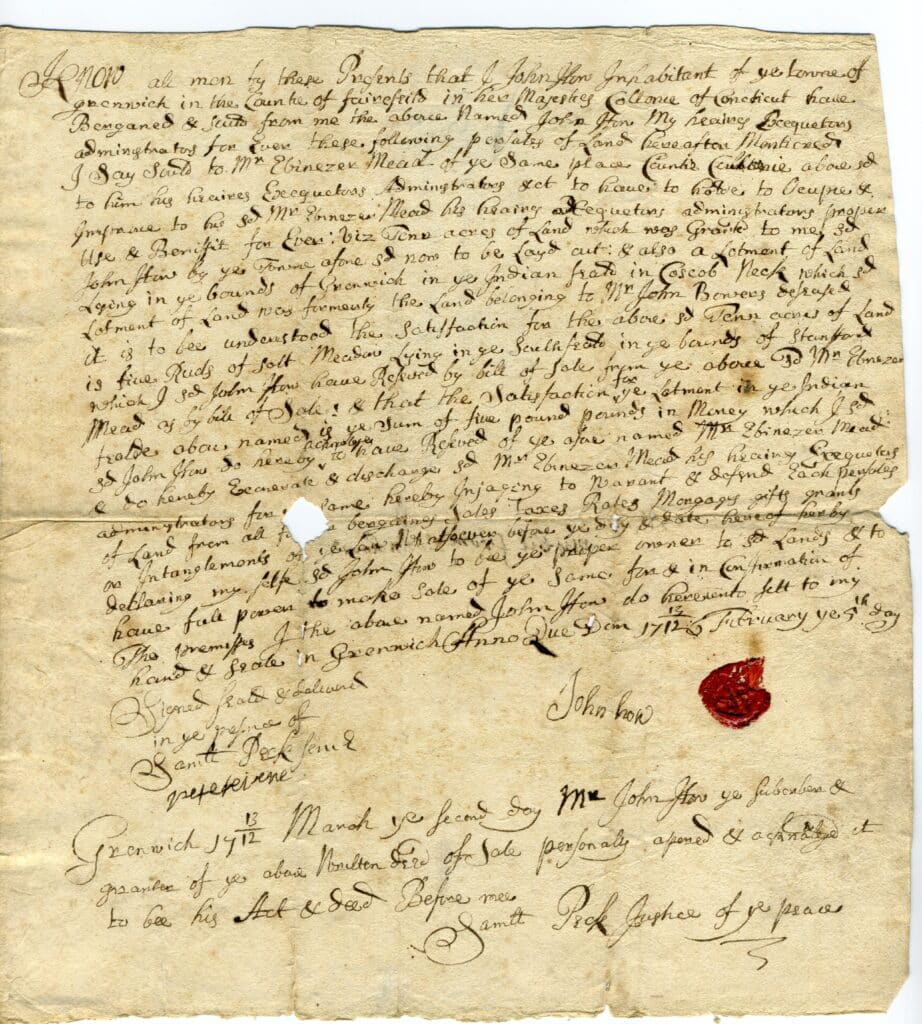 Know all men by these Presents that I John How Inhabitant of ye towne of
Grenwich in the Countie of fairefeild in her Majesties Collonie of Conecticut have
Berganed & sould from me the above Named John How My heaires Execquetors
adminstrators for Ever these following persales of Land hereafter Mentioned
I Say Sould to Mr Ebinezer Mead of ye Same place Countie above sd
to him his heaires Execquetors Adminstrators &ct to have to howe to Ocupie &
Improve to his sd Mr Ebnezer Mead his heaires Exequetors administrators proper
Use & Benifit for Ever: Viz Tenn acres of Land which was Grant to me sd
John How by ye Towne afore sd now to be Layd out: & also a Lotment of Land
Lying in ye bounds of Grenwich in ye Indian feald in Coscob Neck which sd
Lotment of Land was formerly the Land belonging to Mr John Bowers desesed
it is to bee understood the Satisfaction for the above sd Tenn acres of Land
is five Ruds of Salt Meadow Lying in ye Southfeild in ye bounds of Stanford
which I sd John How have Resived by bill of Sale from ye above sd Mr Ebnezer
Mead as by bill of Sale: & that the Satisfaction for ye Lotment in ye Indian
fealde above named is ye Sum of five pound pounds in Money which I sd
sd John How do hereby acknolige to have Reseved of ye afore named Mr Ebinezer Mead:
& do hereby Exonerate & discharge sd Mr Ebinezer Mead his heairs Exequetors
adminstrators for same hereby Injaging to Warant & defend Each persales
of Land from all bergains Sales Taxes Rates Morgages gifts grants
or Intanglements Whatsoever before ye day & date hereof herby
declaring my selfe sd John How to be ye proper owner to sd Lands & to
have full power to make Sale of ye Same for & in Confirmation of
The premisses I the above named John How do hereunto sett to my
hand & Seale in Grenwich Anno Que Dom 17 13/12 Februuary ye 5th day
Signed Seald & deliverd
in ye presince of
Samll Peck Senr
John how
Grenwich 17 13/12 March ye second day Mr John How ye subcriber &
granter of ye above Written deed of Sale personally apered & acknolige it
to bee his Act & deed Before mee
Samll Peck Justice of ye peace